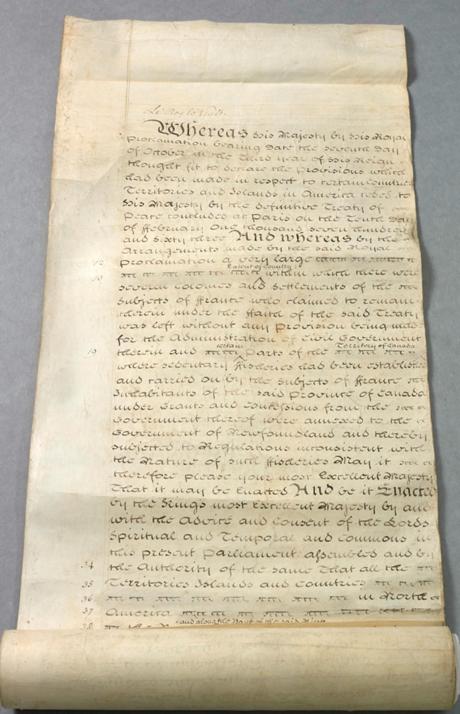 Whereas His Majesty by His Royal
Proclamation bearing Date the seventh Day
of October in the Third Year of His Reign
thought fit to declare the Provisions which
had been made in respect to certain Countries
Territories and Islands in America ceded to
His Majesty by the definitive Treaty of
Peace concluded at Paris on the Tenth Day
of ffebruary One thousand seven hundred
and sixty three And whereas by the
Arrangements made by the said Royal
Proclamation a very large
extent of Country
within which there were
several Colonies and Settlements of the
Subjects of ffrance who claimed to remain
therein under the ffaith of the said Treaty
was left without any Provision being made
for the Administration of Civil Government
certain Territory of Canada
19 therein and Parts of the
where sedentary ffisheries had been established
and carried on by the Subjects of ffrance
Inhabitants of the said Province of Canada
under Grants and Concessions from the
Government thereof were annexed to the
Government of Newfoundland and thereby
subjected to Regulations inconsistent with
the Nature of such ffisheries May it
therefore please Your most Excellent Majesty
That it may be Enacted And be it Enacted
by the Kings most Excellent Majesty by and
with the Advice and Consent of the Lords
Spiritual and Temporal and Commons in
this present Parliament assembled and by
34 the Authority of the same That all the
35 Territories Islands and Countries
36 in North
37 America
38
and along the Bank of the said River